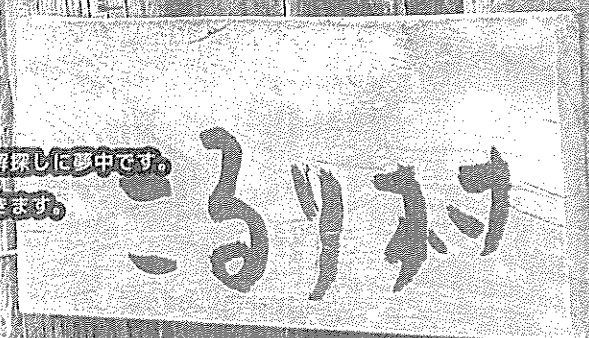 探しに夢中です。
きます。
こるり村